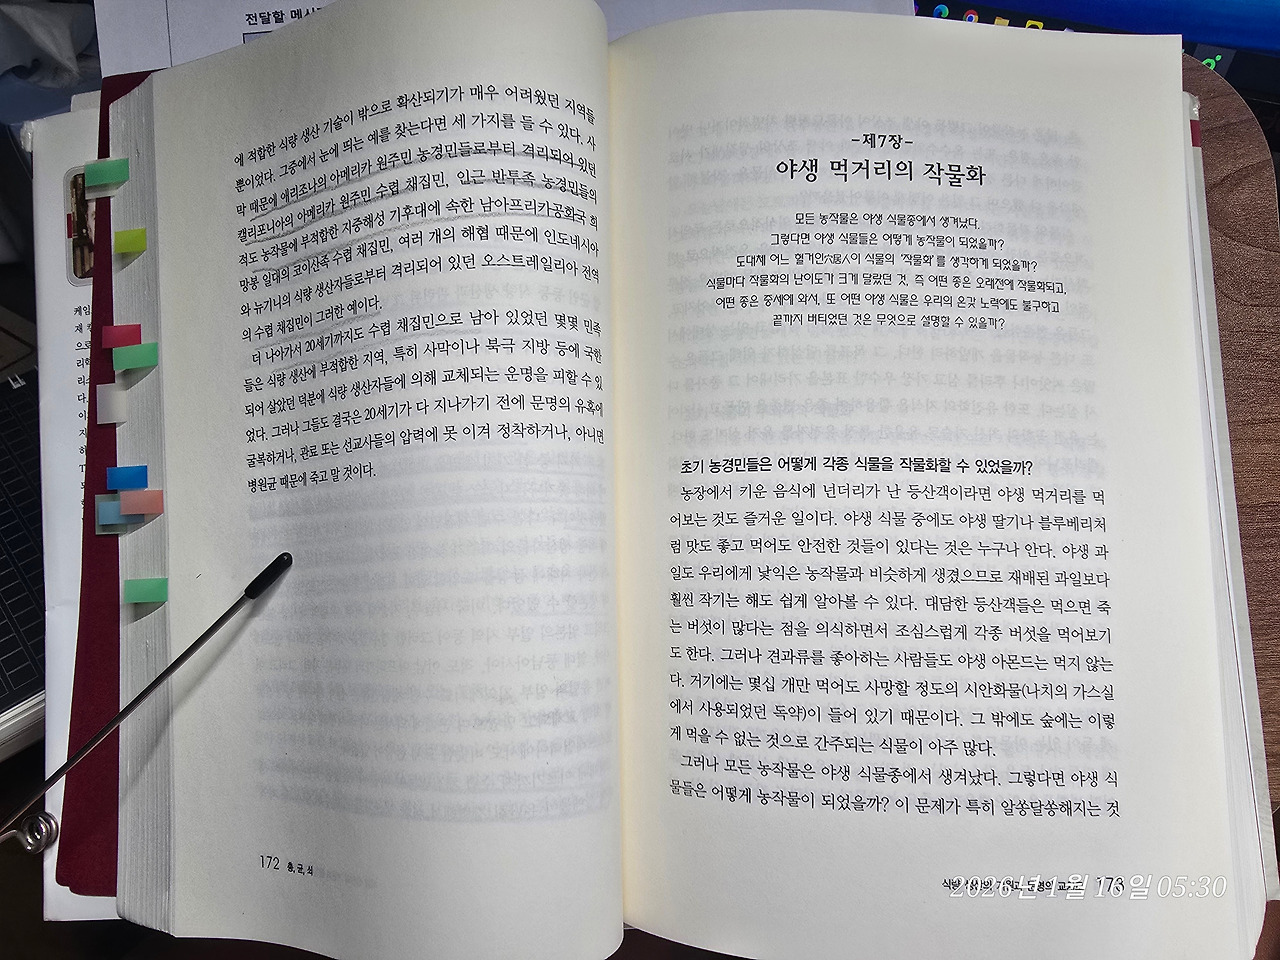 전달할 메시
에 적합한 식량 생산 기술이 밖으로 확산되기가 매우 어려웠던 지역들
뿐이었다. 그중에서 눈에 띄는 예를 찾는다면 세 가지를 들 수 있다. 사
막 때문에 애리조나의 아메리카 원주민 농경민들로부터 격리되어 있던
캘리포니아의 아메리카 원주민 수렵 채집민, 인근 반투족 농경민들의
적도 농작물에 부적합한 지중해성 기후대에 속한 남아프리카공화국 희
망봉 일대의 코이산족 수렵 채집민, 여러 개의 해협 때문에 인도네시아
와 뉴기니의 식량 생산자들로부터 격리되어 있던 오스트레일리아 전역
의 수렵 채집민이 그러한 예이다.
더 나아가서 20세기까지도 수렵 채집민으로 남아 있었던 몇몇 민족
들은 식량 생산에 부적합한 지역, 특히 사막이나 북극 지방 등에 국한
되어 살았던 덕분에 식량 생산자들에 의해 교체되는 운명을 피할 수 있
었다. 그러나 그들도 결국은 20세기가 다 지나가기 전에 문명의 유혹에
굴복하거나, 관료 또는 선교사들의 압력에 못 이겨 정착하거나, 아니면
병원균 때문에 죽고 말 것이다.
172 총, 균, 쇠
-제7장-
야생 먹거리의 작물화
모든 농작물은 야생 식물종에서 생겨났다.
그렇다면 야생 식물들은 어떻게 농작물이 되었을까?
도대체 어느 혈거인穴居人이 식물의 '작물화'를 생각하게 되었을까?
식물마다 작물화의 난이도가 크게 달랐던 것, 즉 어떤 종은 오래전에 작물화되고,
어떤 종은 중세에 와서, 또 어떤 야생 식물은 우리의 온갖 노력에도 불구하고
끝까지 버티었던 것은 무엇으로 설명할 수 있을까?
초기 농경민들은 어떻게 각종 식물을 작물화할 수 있었을까?
농장에서 키운 음식에 넌더리가 난 등산객이라면 야생 먹거리를 먹
어보는 것도 즐거운 일이다. 야생 식물 중에도 야생 딸기나 블루베리처
럼 맛도 좋고 먹어도 안전한 것들이 있다는 것은 누구나 안다. 야생 과
일도 우리에게 낯익은 농작물과 비슷하게 생겼으므로 재배된 과일보다
훨씬 작기는 해도 쉽게 알아볼 수 있다. 대담한 등산객들은 먹으면 죽
는 버섯이 많다는 점을 의식하면서 조심스럽게 각종 버섯을 먹어보기
도 한다. 그러나 견과류를 좋아하는 사람들도 야생 아몬드는 먹지 않는
다. 거기에는 몇십 개만 먹어도 사망할 정도의 시안화물(나치의 가스실
에서 사용되었던 독약)이 들어 있기 때문이다. 그 밖에도 숲에는 이렇
게 먹을 수 없는 것으로 간주되는 식물이 아주 많다.
그러나 모든 농작물은 야생 식물종에서 생겨났다. 그렇다면 야생 식
물들은 어떻게 농작물이 되었을까? 이 문제가 특히 알쏭달쏭해지는 것
식량 생산의 기원과 문명의 교차로 173
2026년 1월 16일 05:30